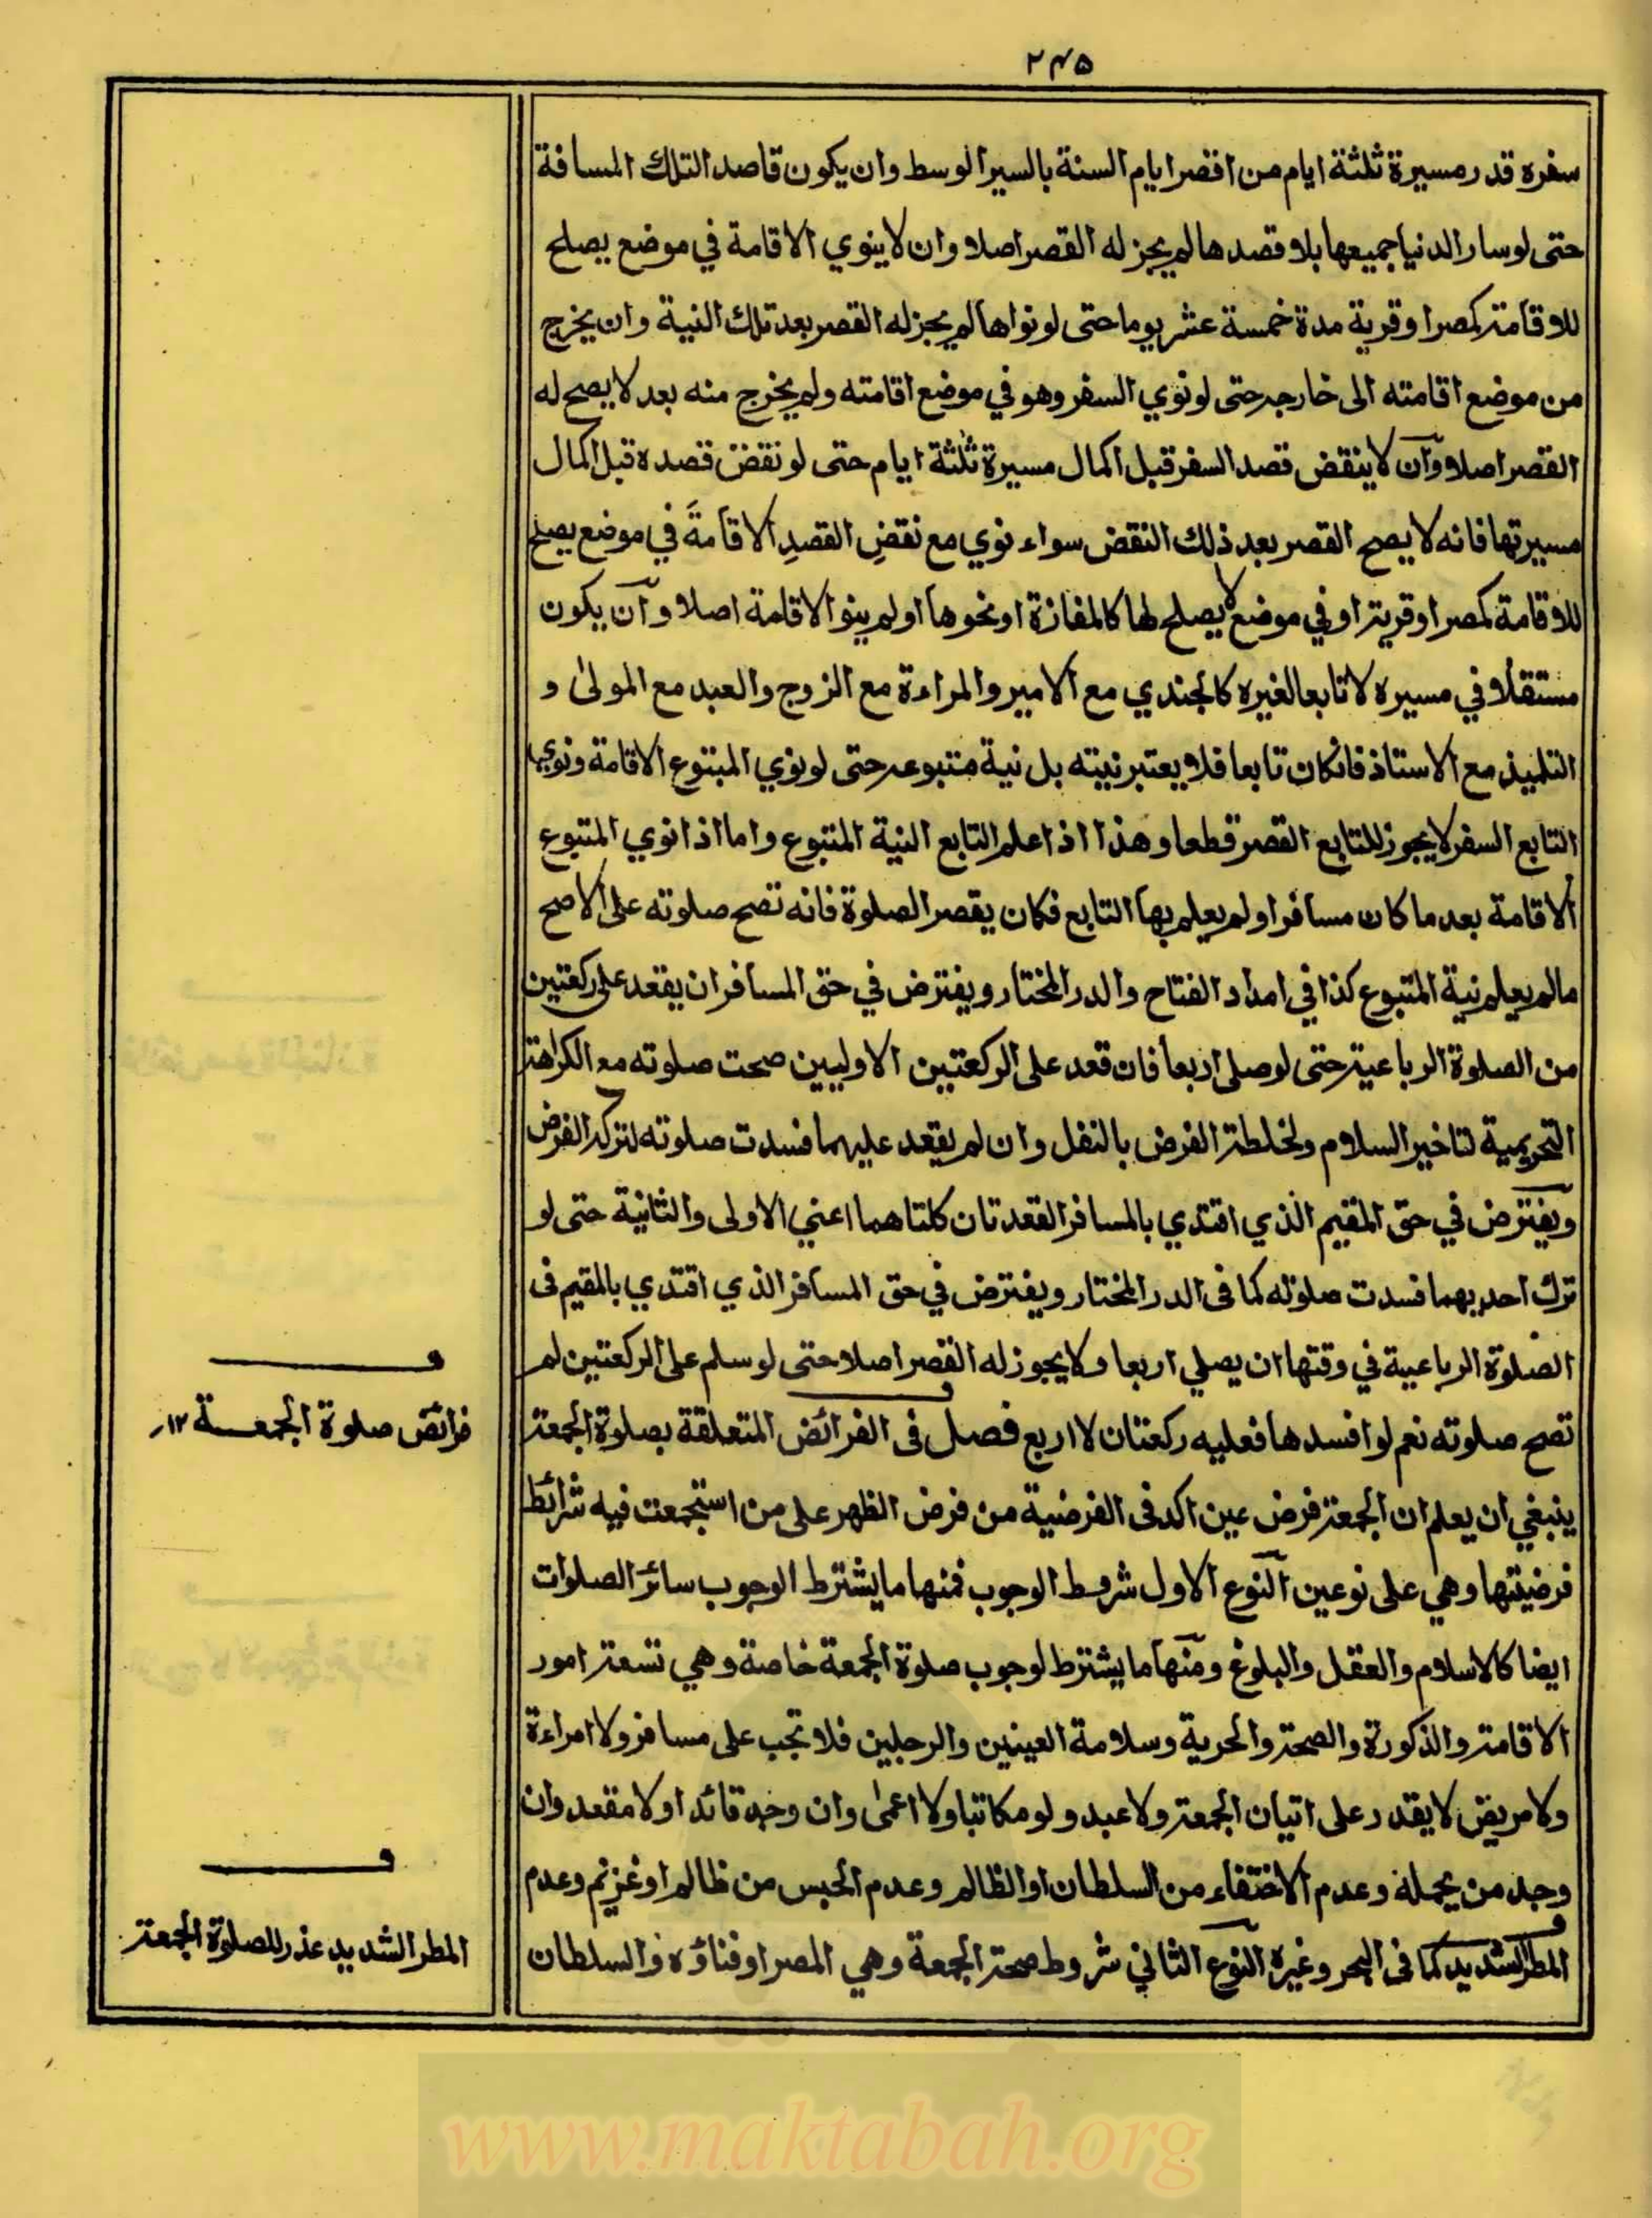 ۲۴۵
سفره قدر مسيرة ثلثة ايام من اقصر ايام السنة بالسير الوسط وان يكون قاصد التلك المسافة
حتى لو سار الدنيا جميعها بلا قصدها لم يجز له القصر اصلا وان لا ينوي الاقامة في موضع يصلح
للاقامة كمصر او قرية مدة خمسة عشر يوما حتى لو نواها لم يجز له القصر بعد تلك النية وان يخرج
من موضع اقامته الى خارجه حتى لو نوي السفر وهو في موضع اقامته ولم يخرج منه بعد لا يصح له
القصر اصلا وان لا ينقض قصد السفر قبل اكمال مسيرة ثلثة ايام حتى لو نقض قصده قبل اكمال
مسيرتها فانه لا يصح القصر بعد ذلك النقض سواء نوي مع نقضِ القصدِ الاقامةَ في موضع يصلح
للاقامة كمصر او قرية او في موضع لا يصلح لها كالمفازة او نحوها او لم ينو الاقامة اصلا وان يكون
مستقلا في مسيره لا تابعا لغيره كالجندي مع الامير والمراءة مع الزوج والعبد مع المولىٰ و
التلميذ مع الاستاذ فانكان تابعا فلا يعتبر نيته بل نية متبوعه حتى لو نوي المبتوع الاقامة ونوي
التابع السفر لا يجوز للتابع القصر قطعا وهذا اذا علم التابع النية المتبوع واما اذا نوي المتبوع
الاقامة بعد ما كان مسافرا ولم يعلم بها التابع فكان يقصر الصلوة فانه تصح صلوته على الاصح
مالم يعلم نية المتبوع كذا في امداد الفتاح والدر المختار ويفترض في حق المسافر ان يقعد على ركعتين
من الصلوة الرباعية حتى لو صلى اربعا فان قعد على الركعتين الاوليين صحت صلوته مع الكراهة
التحريمية لتاخير السلام ولخلطة الفرض بالنفل وان لم يقعد عليهما فسدت صلوته لتركه الفرض
ويفترض في حق المقيم الذي اقتدي بالمسافر القعدتان كلتاهما اعني الاولى والثانية حتى لو
ترك احديهما فسدت صلوته كما فى الدر المختار ويفترض في حق المسافر الذي اقتدي بالمقيم فى
الصلوة الرباعية في وقتها ان يصلي اربعا ولا يجوز له القصر اصلا حتى لو سلم على الركعتين لم
تصح صلوته نعم لو افسدها فعليه ركعتان لا اربع فصل فى الفرائض المتعلقة بصلوة الجمعة
ينبغي ان يعلم ان الجمعة فرض عين اكد فى الفرضية من فرض الظهر على من استجمعت فيه شرائط
فرضيتها وهي على نوعين النوع الاول شروط الوجوب فمنها ما يشترط الوجوب سائر الصلوات
ايضا كالاسلام والعقل والبلوغ ومنها ما يشترط لوجوب صلوة الجمعة خاصة وهي تسعة امور
الاقامة والذكورة والصحة والحرية وسلامة العينين والرجلين فلا تجب على مسافر ولا امراءة
ولا مريض لا يقدر على اتيان الجمعة ولا عبد ولو مكاتبا ولا اعمىٰ وان وجد قائدا ولا مقعد وان
وجد من يحمله وعدم الاختفاء من السلطان او الظالم وعدم الحبس من ظالم او غريم وعدم
المطر الشديد كما فى البحر وغيره النوع الثاني شروط صحة الجمعة وهي المصر او فناؤه والسلطان
ف
فرائض صلوة الجمعة ١٢
ف
المطر الشديد عذر للصلوة الجمعة
www.maktabah.org